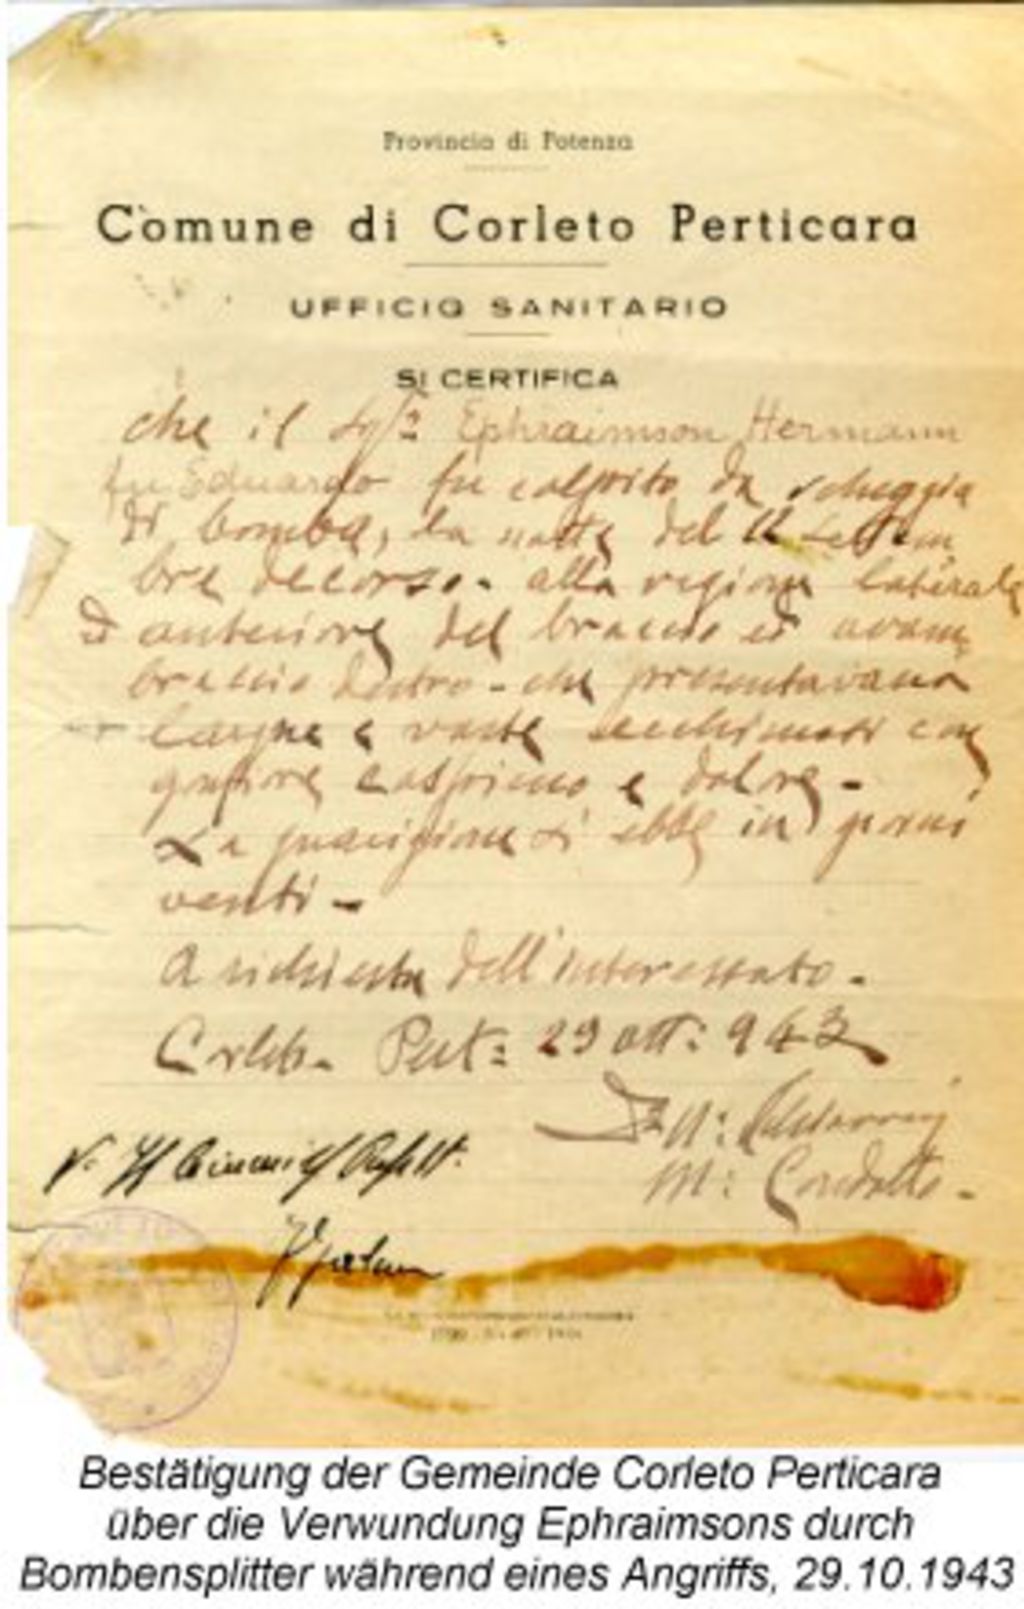 Provincia di Potenza
Comune di Corleto Perticara
UFFICIO SANITARIO
SI CERTIFICA
che il Ephraimson Hermann
fu Eduardo fu colpito da scheggia
di bomba, la notte del settem
bre decorso. alla regione laterale
anteriore del braccio ed avam
braccio destro - che presentavano
larghe e vaste ecchimosi con
gonfiore e dolore -
La guarigione si ebbe in giorni
venti -
A richiesta dell'interessato -
Corleto Pert: 29 ott: 943
Bestätigung der Gemeinde Corleto Perticara
über die Verwundung Ephraimsons durch
Bombensplitter während eines Angriffs, 29.10.1943